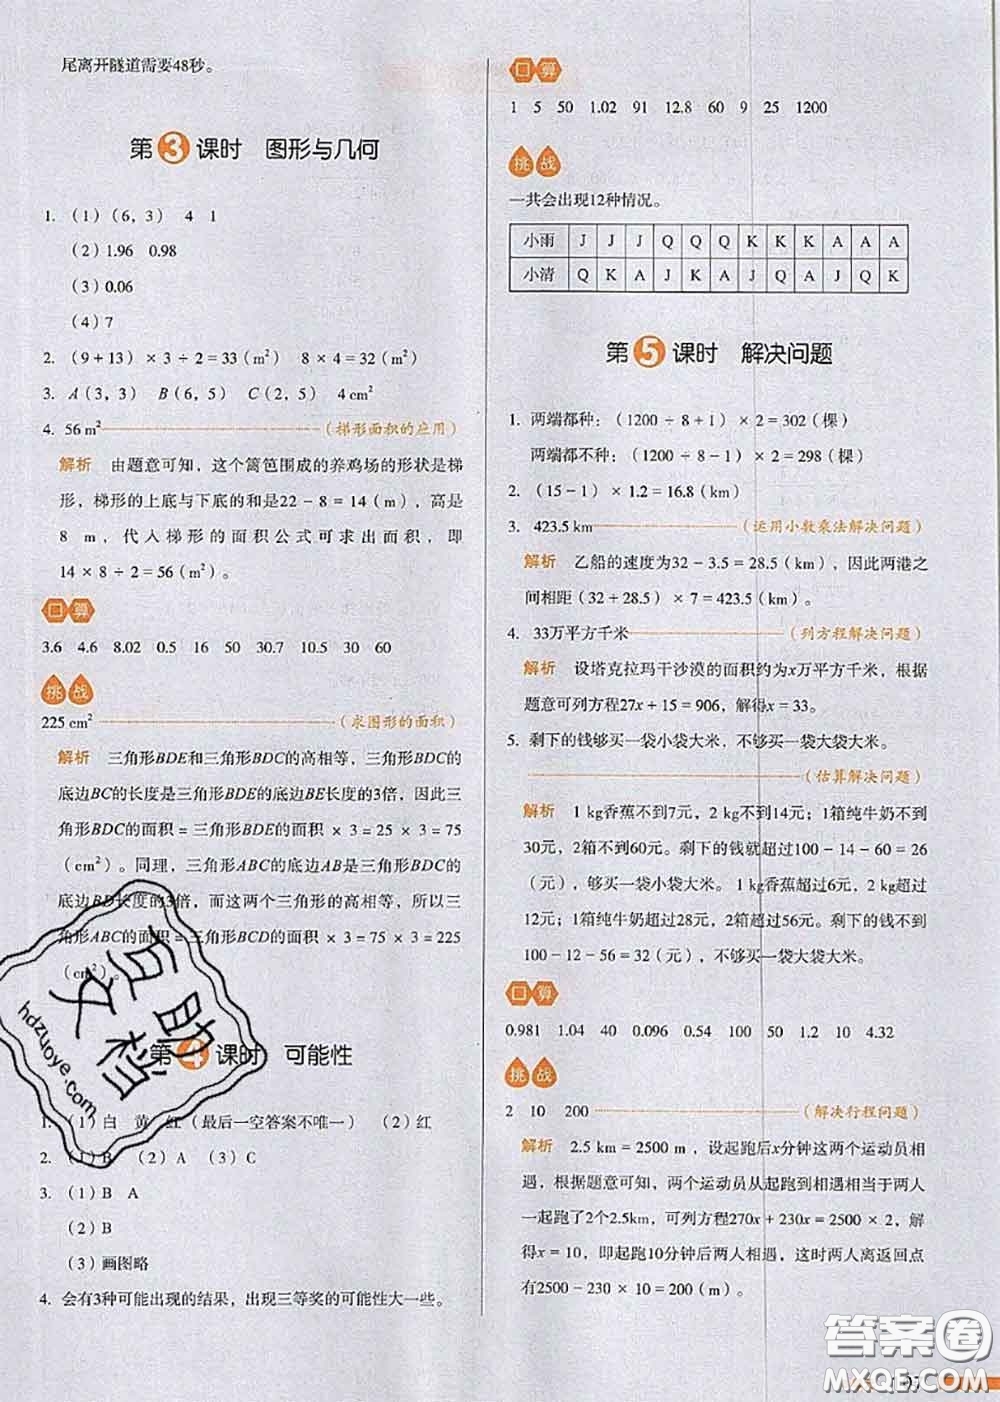 尾离开隧道需要48秒。
第3课时 图形与几何
1. （1）（6，3） 4 1
（2）1.96 0.98
（3）0.06
（4）7
2. （9＋13）×3÷2＝33（m²） 8×4＝32（m²）
3. A（3，3） B（6，5） C（2，5） 4 cm²
4. 56 m²（梯形面积的应用）
解析 由题意可知，这个篱笆围成的养鸡场的形状是梯
形，梯形的上底与下底的和是22－8＝14（m），高是
8 m，代入梯形的面积公式可求出面积，即
14×8÷2＝56（m²）。
口算
3.6 4.6 8.02 0.5 16 50 30.7 10.5 30 60
挑战
225 cm²（求图形的面积）
解析 三角形BDE和三角形BDC的高相等，三角形BDC的
底边BC的长度是三角形BDE的底边BE长度的3倍，因此三
角形BDC的面积＝三角形BDE的面积×3＝25×3＝75
（cm²）。同理，三角形ABC的底边AB是三角形BDC的
底边BD长度的3倍，而这两个三角形的高相等，所以三
角形ABC的面积＝三角形BCD的面积×3＝75×3＝225
（cm²）。
互助文档
hdzuoye.com
第4课时 可能性
1. （1）白 黄 红（最后一空答案不唯一） （2）红
2. （1）B （2）A （3）C
3. （1）B A
（2）B
（3）画图略
4. 会有3种可能出现的结果，出现三等奖的可能性大一些。
口算
1 5 50 1.02 91 12.8 60 9 25 1200
挑战
一共会出现12种情况。
小雨 J J J Q Q Q K K K A A A
小清 Q K A J K A J Q A J Q K
第5课时 解决问题
1. 两端都种：（1200÷8＋1）×2＝302（棵）
两端都不种：（1200÷8－1）×2＝298（棵）
2. （15－1）×1.2＝16.8（km）
3. 423.5 km（运用小数乘法解决问题）
解析 乙船的速度为32－3.5＝28.5（km），因此两港之
间相距（32＋28.5）×7＝423.5（km）。
4. 33万平方千米（列方程解决问题）
解析 设塔克拉玛干沙漠的面积约为x万平方千米，根据
题意可列方程27x＋15＝906，解得x＝33。
5. 剩下的钱够买一袋小袋大米，不够买一袋大袋大米。
（估算解决问题）
解析 1 kg香蕉不到7元，2 kg不到14元；1箱纯牛奶不到
30元，2箱不到60元。剩下的钱就超过100－14－60＝26
（元），够买一袋小袋大米。1 kg香蕉超过6元，2 kg超过
12元；1箱纯牛奶超过28元，2箱超过56元。剩下的钱不到
100－12－56＝32（元），不够买一袋大袋大米。
口算
0.981 1.04 40 0.096 0.54 100 50 1.2 10 4.32
挑战
2 10 200（解决行程问题）
解析 2.5 km＝2500 m，设起跑后x分钟这两个运动员相
遇，根据题意可知，两个运动员从起跑到相遇相当于两人
一起跑了2个2.5km，可列方程270x＋230x＝2500×2，解
得x＝10，即起跑10分钟后两人相遇，这时两人离返回点
有2500－230×10＝200（m）。
答案圈
MXQE.COM
07